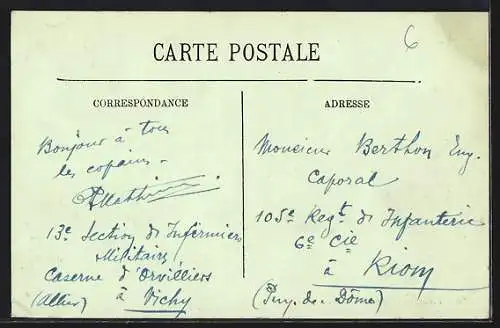 6
CARTE POSTALE
CORRESPONDANCE
Bonjour à tous
les copains -
13e Section de Infirmiers
Militaires
Caserne d'Orvilliers
(Allier) à Vichy
ADRESSE
Monsieur Berthon Eug.
Caporal
105e Regt. de Infanterie
6e Cie
à Riom
(Puy-de-Dôme)